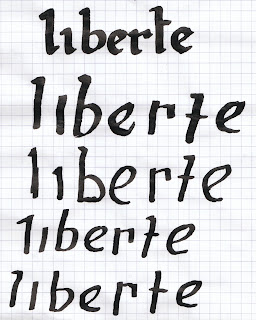 liberte
liberte
liberte
liberte
liberte